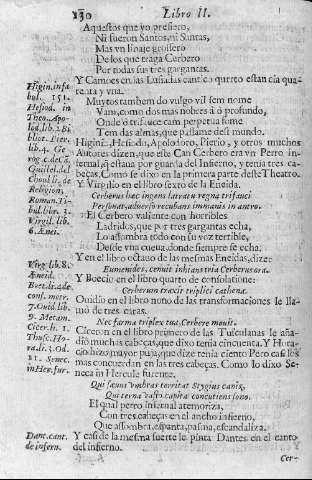 130 Libro II.
Aquestos que yo prefiero,
Ni fueron Santos, ni Santas,
Mas vn linaje grosero
De los que traga Cerbero
Por todas sus tres gargantas.
Y Camoes en las Lusiadas cantico quarto estancia qua
renta y vna.
Muytos tambem do vulgo vil sem nome
Vam, como dos mas nobres à ó profundo,
Onde ó trifauce cam perpetua fome
Tem das almas, que passame dest mundo.
Higini, Hesiodo, Apolodoro, Pierio, y otros muchos
Autores dizen, que este Can Cerbero era vn Perro in-
fernal, q̃ estaua por guarda del Infierno, y tenia tres ca-
beças. Como se dixo en la primera parte deste Theatro.
Y Virgilio en el libro sexto de la Eneida.
Cerberus hæc ingens latratu regna trifauci
Personat, aduerso recubans immanis in antro.
El Cerbero valiente con horribles
Ladridos, que por tres gargantas echa,
Lo assombra todo con su voz terrible,
Desde vna cueua, donde siempre se echa.
Y en el libro octauo de las mesmas Eneidas, dize:
Eumenides, tenuit inhians tria Cerberus ora.
Y Boecio en el libro quarto de consolatione:
Cerberum traxit triplici cathena.
Ouidio en el libro nono de las transformaciones le lla-
mo de tres caras.
Nec forma triplex tua, Cerbere mouit.
Ciceron en el libro primero de las Tusculanas le aña-
dió muchas cabeças, que dixo tenia cincuenta. Y Hora-
cio hizo mayor puja, que dize tenia ciento Pero casi los
mas concuerdan en las tres cabeças. Como lo dixo Se-
neca in Hercule furente.
Qui sæuus vmbras territat Stygius canis,
Qui terna vasto capita concutiens sono.
El qual perro infernal atemoriza,
Con tres cabeças en el ancho infierno,
Que assombra, espanta, pasma, escandaliza.
Y casi de la mesma suerte le pinta Dantes en el canto
del infierno.
Cer-
Higin. in fa
bul. 151.
Hesiod. in
Theo. Apo-
lod. lib. 2 Bi
bliot. Pier.
lib. 4. Ge
rog
Religion.
Roman. Ti-
Virgil. lib.
6. Ænei.
Virg. lib. 8.
Æneid.
7. Ouid. lib.
9. Metam.
Cicer. li. 1.
Thusc. Ho-
ra. li. 3. Od.
11. Senec.
in Her. fur.
Dant. cant.
de infern.